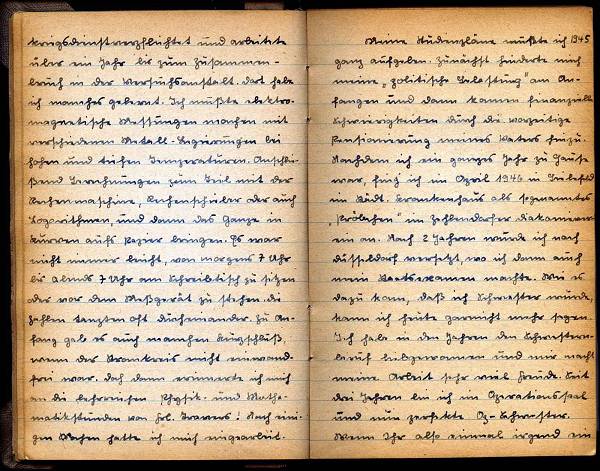 kriegsdienstverpflichtet und arbeitete
über ein Jahr bis zum Zusammen-
bruch in der Versuchsanstalt. Dort habe
ich manches gelernt. Ich mußte elektro-
magnetische Messungen machen mit
verschiedenen Metall-Legierungen bei
hohen und tiefen Temperaturen. Anschlie-
ßend Berechnungen zum Teil mit der
Rechenmaschine, Rechenschieber oder auch
Logarithmen, und dann das Ganze in
Kurven aufs Papier bringen. Es war
nicht immer leicht, von morgens 7 Uhr
bis abends 7 Uhr am Schreibtisch zu sitzen
oder vor dem Meßgerät zu stehen. Die
Zahlen tanzten oft durcheinander. Zu An-
fang gab es auch manchen Kurzschluß,
wenn der Stromkreis nicht einwand-
frei war. Doch dann erinnerte ich mich
an die lehrreichen Physik- und Mathe-
matikstunden von Frl. Travers! Nach eini-
gen Wochen hatte ich mich eingearbeit.
Meine Studienpläne mußte ich 1945
ganz aufgeben. Zunächst hinderte mich
meine „politische Belastung" am An-
fangen und dann kamen finanzielle
Schwierigkeiten durch die vorzeitige
Pensionierung meines Vaters hinzu.
Nachdem ich ein ganzes Jahr zu Hause
war, fing ich im April 1946 in Bielefeld
im Städt. Krankenhaus als sogenanntes
„Pröbchen" im Zehlendorfer Diakoniever-
ein an. Nach 2 Jahren wurde ich nach
Düsseldorf versetzt, wo ich dann auch
mein Staatsexamen machte. Wie es
dazu kam, daß ich Schwester wurde,
kann ich heute garnicht mehr sagen.
Ich habe in den Jahren den Schwestern-
beruf liebgewonnen und mir macht
meine Arbeit sehr viel Freude. Seit
drei Jahren bin ich im Operationssaal
und nun perfekte Op-Schwester.
Wenn Ihr also einmal irgend ein